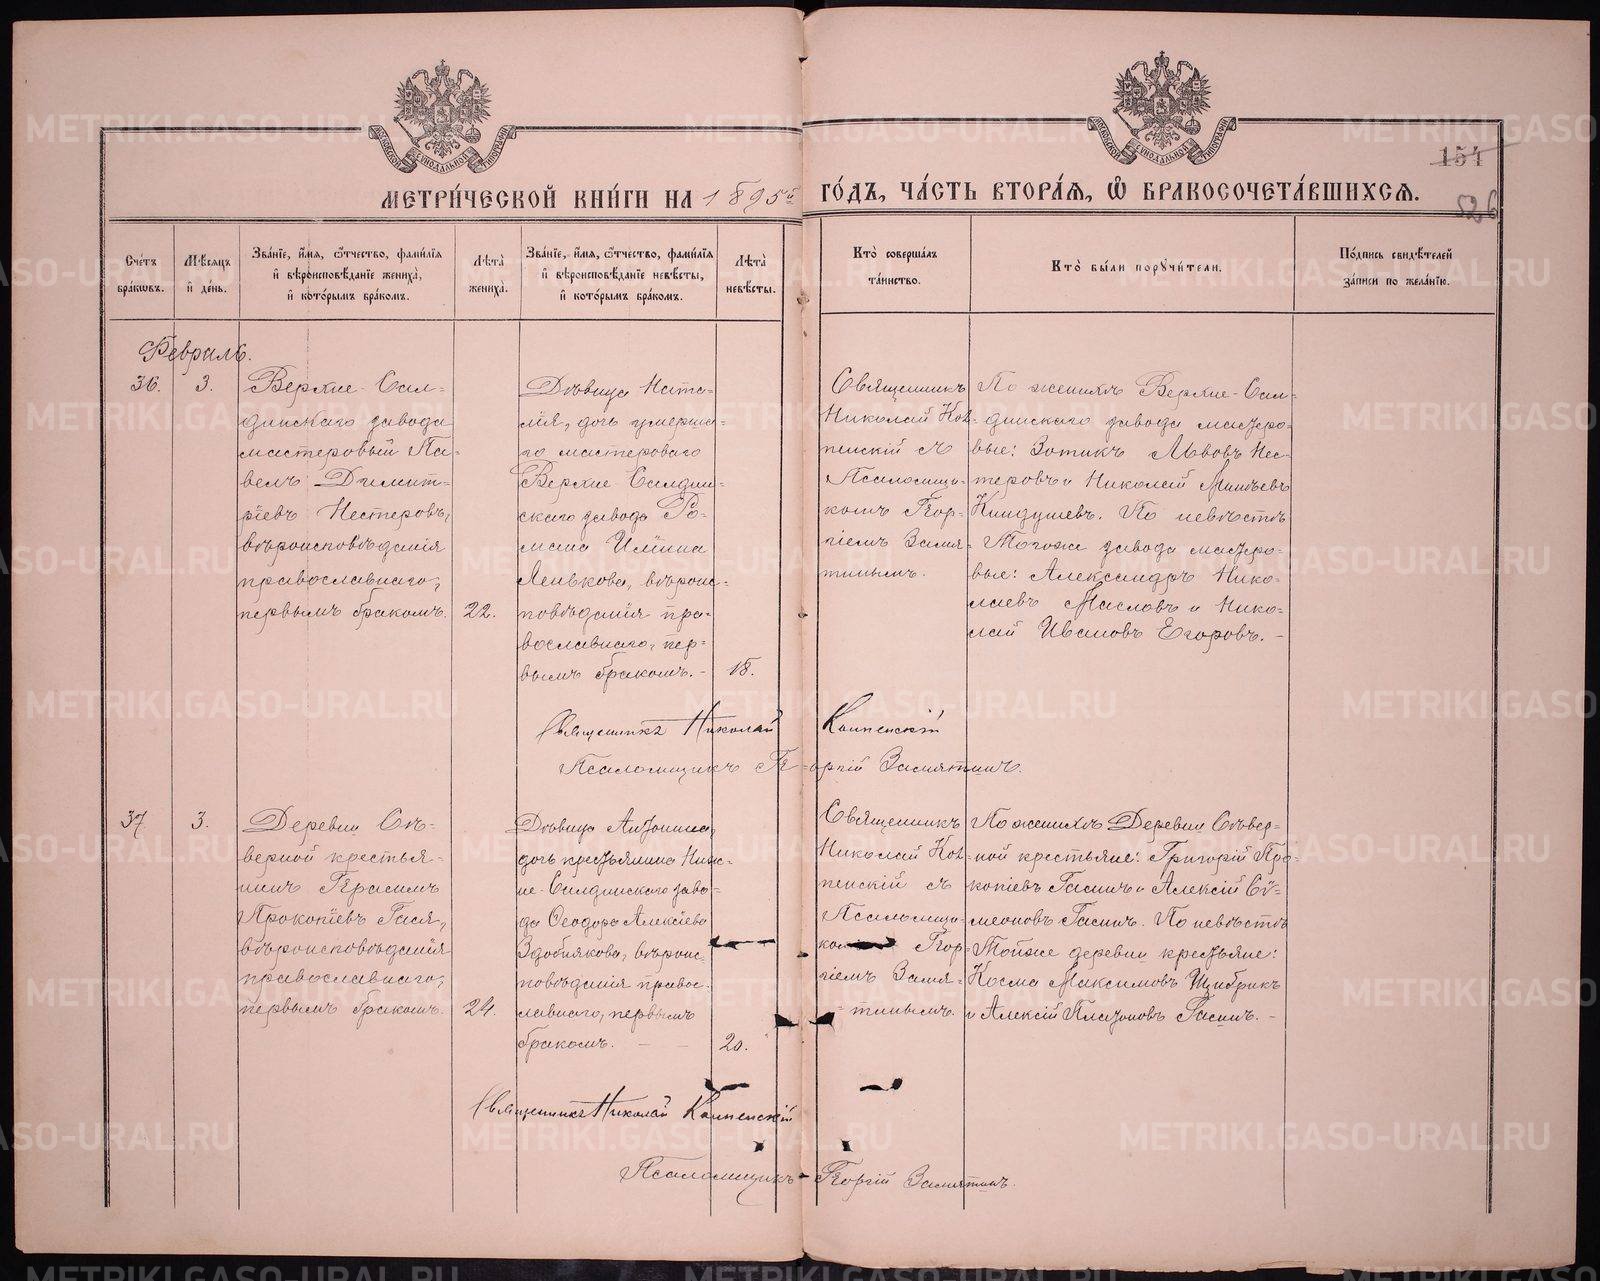 МОСКОВСКОЙ СУНОДАЛЬНОЙ ТИПОГРАФІИ
МОСКОВСКОЙ СУНОДАЛЬНОЙ ТИПОГРАФІИ
154
526
МЕТРИ́ЧЕСКОЙ КНИ́ГИ НА 1895й ГО́ДЪ, ЧА́СТЬ ВТОРА́Я, Ѽ БРАКОСОЧЕТА́ВШИХСЯ.
Сче́тъ бра́кѡвъ.
Мѣ́сяцъ и҆ де́нь.
Зва́нїе, и҆́мя, ѻ҆́тчество, фами́лїя и҆ вѣроисповѣ́данїе жениха̀, и҆ кото́рымъ бра́комъ.
Лѣ́та жениха̀.
Зва́нїе, и҆́мя, ѻ҆́тчество, фами́лїя и҆ вѣроисповѣ́данїе невѣ́сты, и҆ кото́рымъ бра́комъ.
Лѣ́та невѣ́сты.
Кто̀ соверша́лъ та́инство.
Кто̀ бы́ли поручи́тели.
По́дпись свидѣ́телей за́писи по жела́нїю.
Февраль.
36.
3.
Верхне-Сал-
динскаго завода
мастеровый Па-
велъ Димит-
ріевъ Нестеровъ,
вѣроисповѣданія
православнаго,
первымъ бракомъ.
22.
Дѣвица Ната-
лія, дочь умерша-
го мастероваго
Верхне-Салдин-
скаго завода Ро-
мана Ильина
Ленькова, вѣроис-
повѣданія пра-
вославнаго, пер-
вымъ бракомъ.-
18.
Священникъ
Николай Кон-
пенскій съ
Псаломщи-
комъ Геор-
гіемъ Замя-
тинымъ.
По женихѣ Верхне-Сал-
динскаго завода мастеро-
вые: Зотикъ Львовъ Нес-
теровъ и Николай Минѣевъ
Киндушевъ. По невѣстѣ
Тогоже завода мастеро-
вые: Александръ Нико-
лаевъ Масловъ и Нико-
лай Ивановъ Егоровъ.-
Священникъ Николай Коппенскій
Псаломщикъ Георгій Замятинъ.
37
3.
Деревни Сѣ-
верной крестья-
нинъ Герасимъ
Прокопіевъ Гася,
вѣроисповѣданія
православнаго,
первымъ бракомъ.
24.
Дѣвица Антонина,
дочь крестьянина Ниж-
не-Салдинскаго заво-
да Ѳеодора Алексіева
Здобнякова, вѣроис-
повѣданія правос-
лавнаго, первымъ
бракомъ. — —
20.
Священникъ
Николай Коп-
пенскій съ
Псаломщи-
комъ Геор-
гіемъ Замя-
тинымъ.
По женихѣ Деревни Сѣвер-
ной крестьяне: Григорій Про-
копіевъ Гасинъ и Алексій Сѵ-
меоновъ Гасинъ. По невѣстѣ
Тойже деревни крестьяне:
Косма Максимовъ Щибрикъ
и Алексій Платоновъ Гасинъ.-
Священникъ Николай Коппенскій
Псаломщикъ Георгій Замятинъ.
METRIKI.GASO-URAL.RU